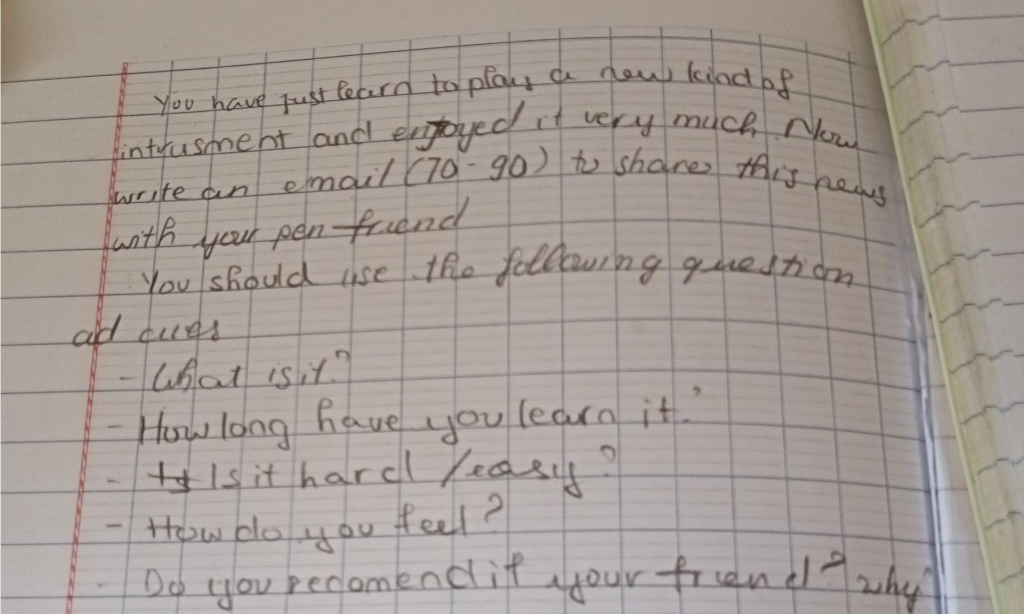 You have just learn to play a new kind of
intrusment and enjoyed it very much. Now
write an email (70-90) to share this news
with your pen friend
You should use the following question
ad cues
- What is it?
- How long have you learn it?
- Is it hard / easy?
- How do you feel?
- Do you recomend it your friend? why